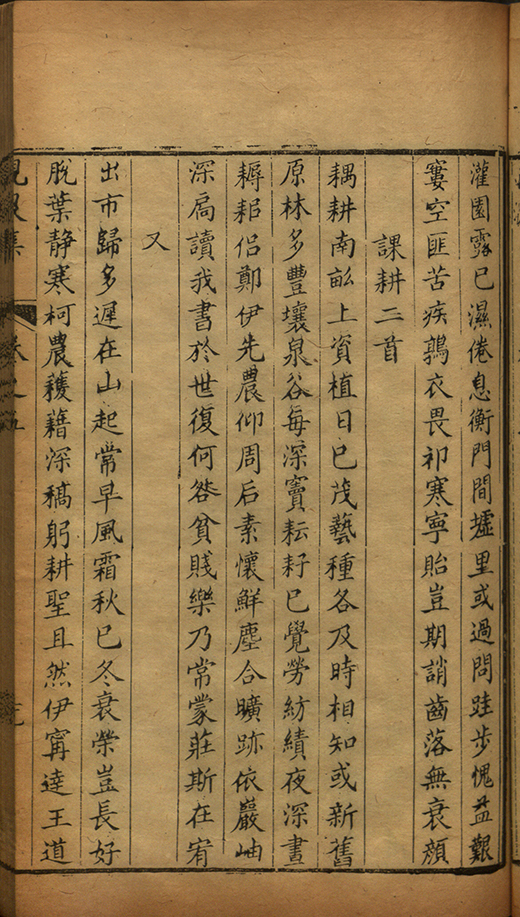 灌園露已濕倦息衡門間墟里或過問跬步愧益艱
窶空匪苦疾鶉衣畏祁寒寧貽豈期誚齒落無衰顏
課耕二首
耦耕南畝上資植日已茂藝種各及時相知或新舊
原林多豐壤泉谷每深竇耘耔已覺勞紡績夜深晝
耨耜侶鄭伊先農仰周后素懷鮮塵合曠跡依巖岫
深扃讀我書於世復何咎貧賤樂乃常蒙莊斯在宥
又
出市歸多遲在山起常早風霜秋已冬衰榮豈長好
脫葉静寒柯農穫藉深稿躬耕聖且然伊寗達王道
集 卷之五